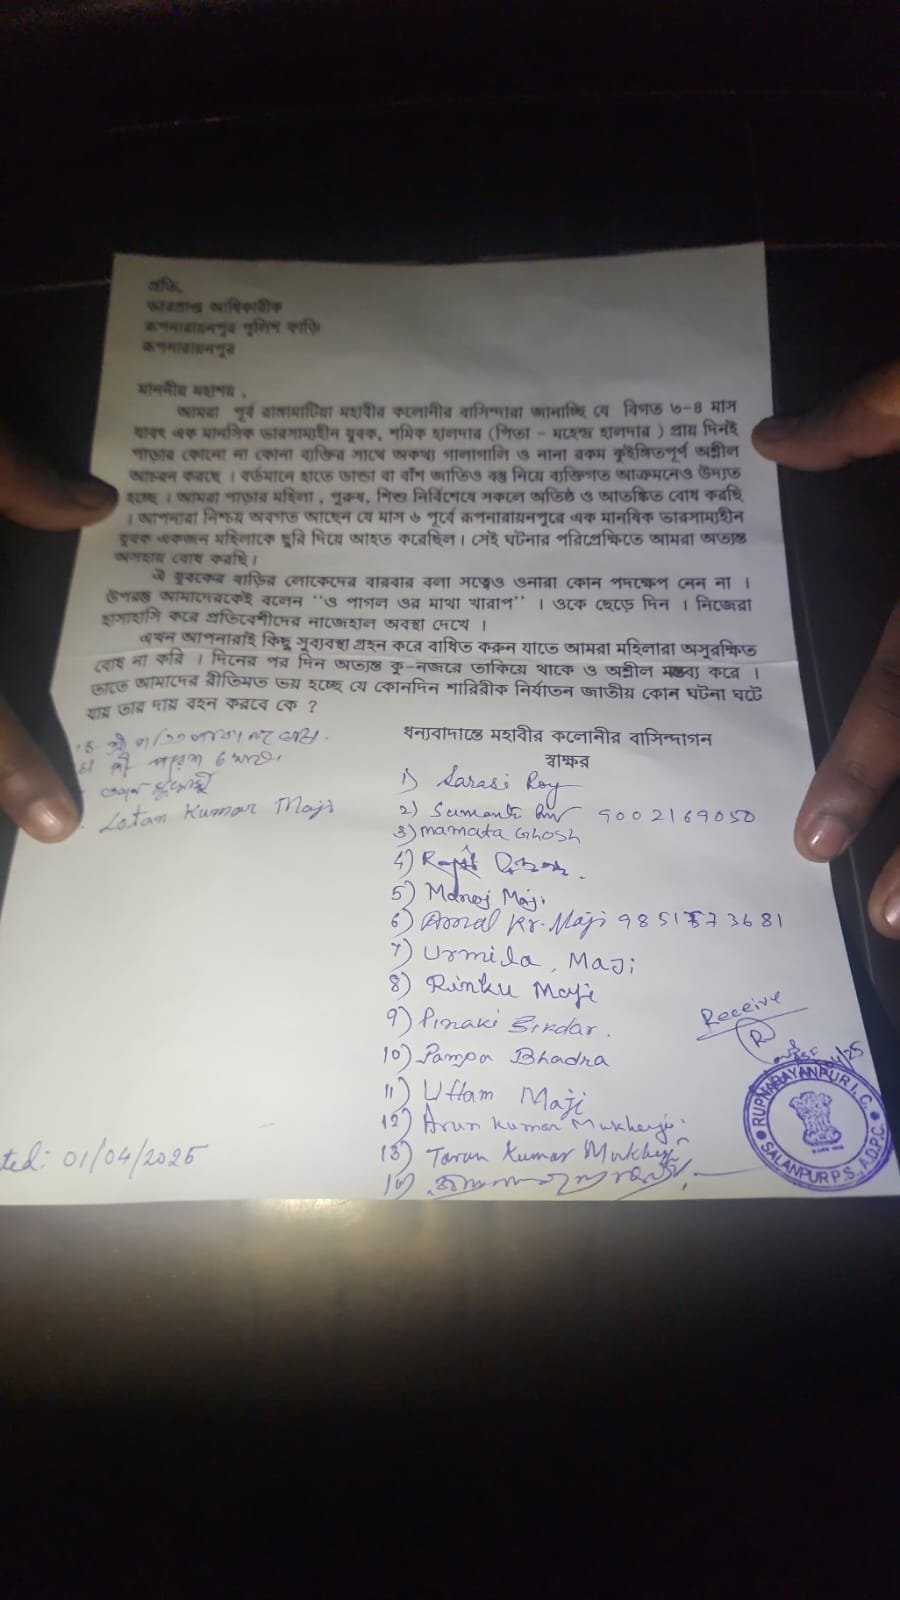 প্রতি,
ভারপ্রাপ্ত আধিকারীক
রূপনারায়নপুর পুলিশ ফাড়ি
রূপনারায়নপুর
মাননীয় মহাশয় ,
আমরা পূর্ব রাঙ্গামাটিয়া মহাবীর কলোনীর বাসিন্দারা জানাচ্ছি যে বিগত ৩-৪ মাস
যাবৎ এক মানসিক ভারসাম্যহীন যুবক, শমিক হালদার (পিতা - মহেন্দ্র হালদার ) প্রায় দিনই
পাড়ার কোনো না কোনা ব্যক্তির সাথে অকথ্য গালাগালি ও নানা রকম কুইঙ্গিতপূর্ণ অশ্লীল
আচরন করছে । বর্তমানে হাতে ডান্ডা বা বাঁশ জাতিও বস্তু নিয়ে ব্যক্তিগত আক্রমনেও উদ্যত
হচ্ছে । আমরা পাড়ার মহিলা , পুরুষ, শিশু নির্বিশেষে সকলে অতিষ্ঠ ও আতঙ্কিত বোধ করছি
। আপনারা নিশ্চয় অবগত আছেন যে মাস ৬ পূর্বে রূপনারায়নপুরে এক মানষিক ভারসাম্যহীন
যুবক একজন মহিলাকে ছুরি দিয়ে আহত করেছিল । সেই ঘটনার পরিপ্রেক্ষিতে আমরা অত্যন্ত
অসহায় বোধ করছি ।
ঐ যুবকের বাড়ির লোকেদের বারবার বলা সত্বেও ওনারা কোন পদক্ষেপ নেন না ।
উপরন্তু আমাদেরকেই বলেন "ও পাগল ওর মাথা খারাপ" । ওকে ছেড়ে দিন । নিজেরা
হাসাহাসি করে প্রতিবেশীদের নাজেহাল অবস্থা দেখে ।
এখন আপনারাই কিছু সুব্যবস্থা গ্রহন করে বাধিত করুন যাতে আমরা মহিলারা অসুরক্ষিত
বোধ না করি । দিনের পর দিন অত্যন্ত কু-নজরে তাকিয়ে থাকে ও অশ্লীল মন্তব্য করে ।
তাতে আমাদের রীতিমত ভয় হচ্ছে যে কোনদিন শারিরীক নির্যাতন জাতীয় কোন ঘটনা ঘটে
যায় তার দায় বহন করবে কে ?
ধন্যবাদান্তে মহাবীর কলোনীর বাসিন্দাগন
স্বাক্ষর
1) Sarasi Roy
2) 9002169050
3) Mamata Ghosh
4)
5) Manoj Maji
6) Amal Kr. Maji 9851573681
7) Urmila, Maji
8) Rinku Maji
9) Pinaki Sikdar.
10) Pampa Bhadra
11) Uttam Maji
12) Arun Kumar Mukherji.
13) Tarun Kumar Mukherji
14)
শ্রী
শ্রী
Lotan Kumar Maji
Receive
04/25
RUPNARAYANPUR I. C.
SALANPUR P.S., A.D.P.C.
ted: 01/04/2025